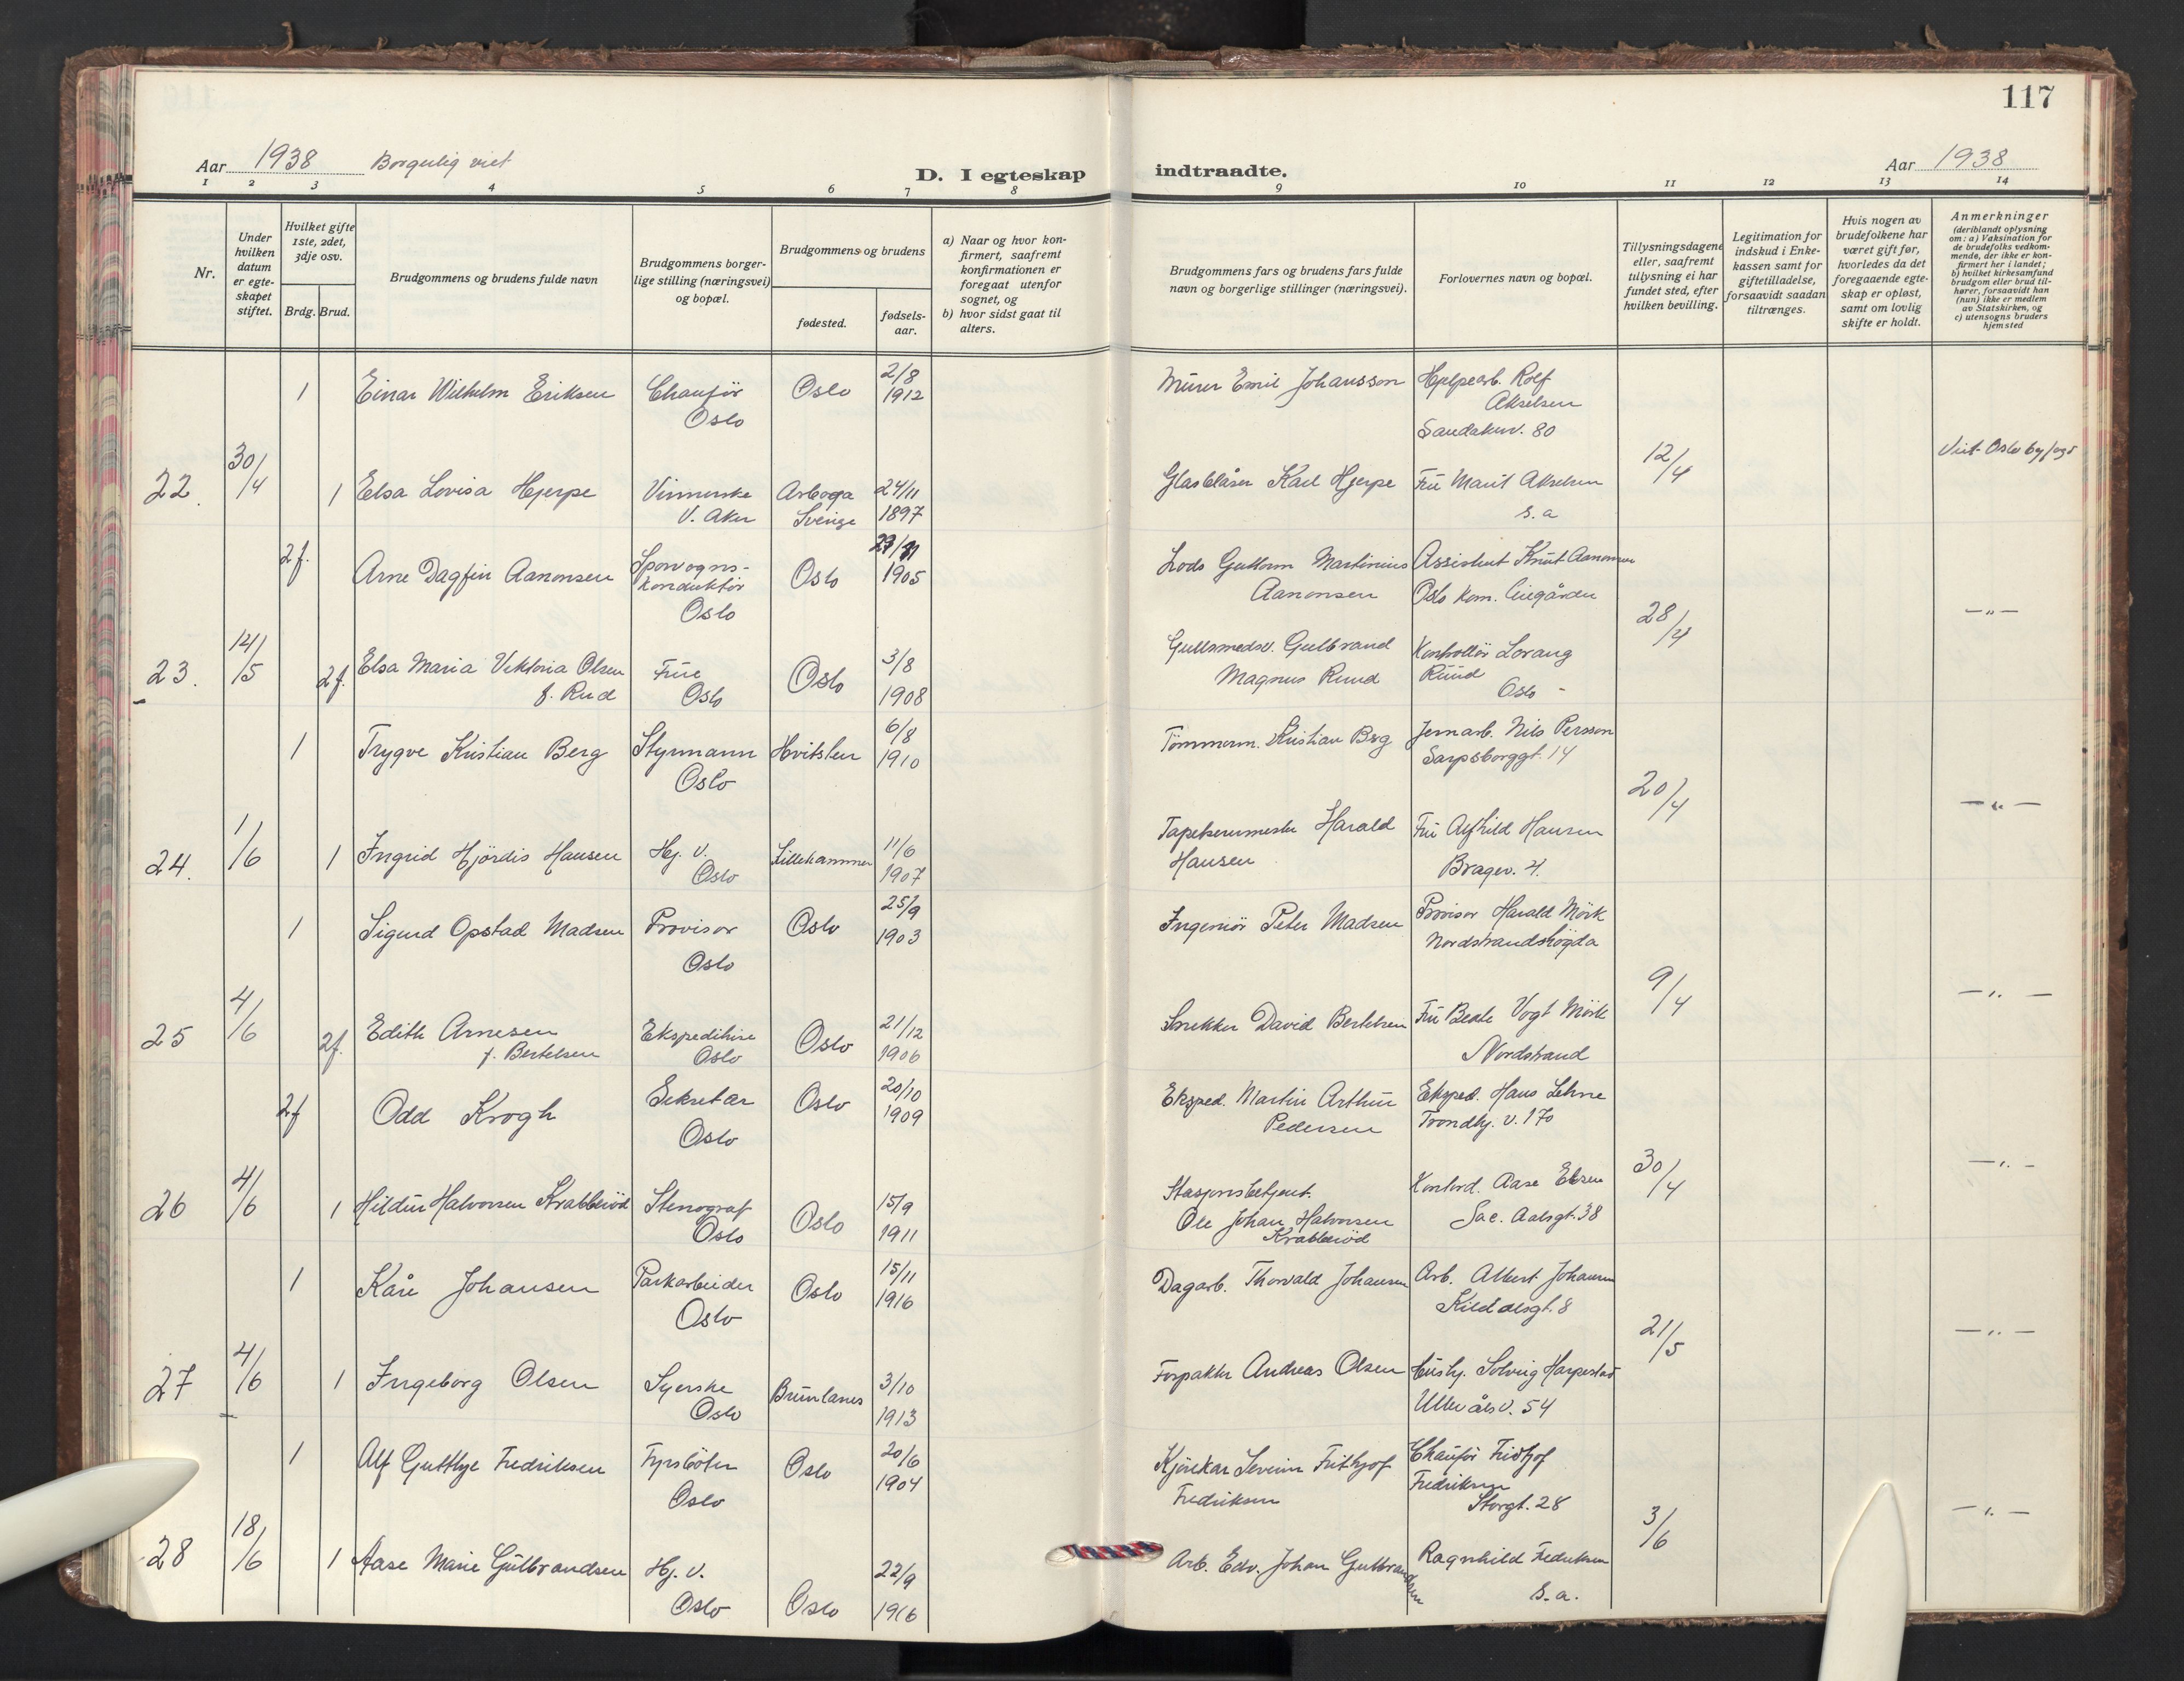 117
Aar 1938 Borgerlig viet
D. I egteskap indtraadte.
Aar 1938
1 2 3 4 5 6 7 8 9 10 11 12 13 14
Nr.
Under hvilken datum er egte-skapet stiftet.
Hvilket gifte 1ste, 2det, 3dje osv.
Brdg. Brud.
Brudgommens og brudens fulde navn
Brudgommens borger-lige stilling (næringsvei) og bopæl.
Brudgommens og brudens
fødested.
fødsels-aar.
a) Naar og hvor kon-firmert, saafremt konfirmationen er foregaat utenfor sognet, og
b) hvor sidst gaat til alters.
Brudgommens fars og brudens fars fulde navn og borgerlige stillinger (næringsvei).
Forlovernes navn og bopæl.
Tillysningsdagene eller, saafremt tillysning ei har fundet sted, efter hvilken bevilling.
Legitimation for indskud i Enke-kassen samt for giftetilladelse, forsaavidt saadan tiltrænges.
Hvis nogen av brudefolkene har været gift før, hvorledes da det foregaaende egte-skap er opløst, samt om lovlig skifte er holdt.
Anmerkninger (deriblandt oplysning om: a) Vaksination for de brudefolks vedkom-mende, der ikke er kon-firmert her i landet; b) hvilket kirkesamfund brudgom eller brud til-hører, forsaavidt han (hun) ikke er medlem av Statskirken, og c) utensogns bruders hjemsted
1 Einar Wilhelm Eriksen Chauför Oslo Oslo 2/8 1912 Murer Emil Johansson Hjelpearb. Rolf Akselsen Sandakerv. 80
22. 30/4 1 Elsa Lovisa Hjerpe V. Aker Arboga Sverige 24/11 1897 Glasblåser Karl Hjerpe Fru Marit Akselsen s. a 12/4 Viet Oslo
2f. Arne Dagfin Aanonsen Sporvogns-konduktör Oslo Oslo 1905 Lods Guttorm Martinius Aanonsen Assistent Knut Aanonsen Oslo kom.
23. 14/5 2f. Elsa Maria Viktoria Olsen f. Rud Frue Oslo Oslo 3/8 1908 Gullsmedsv. Gulbrand Magnus Ruud Kontrollör Lorang Ruud Oslo - 28/4 — „ —
1 Trygve Kristian Berg Styrmann Oslo Hvitsten 6/8 1910 Tömmerm. Kristian Berg Jernarb. Nils Persson Sarpsborggt. 14
24. 1/6 1 Ingrid Hjördis Hansen Hj. v. Oslo Lillehammer 11/6 1907 Tapetserermester Harald Hansen Fru Alfhild Hansen Bragev. 4. 20/4 — „ —
1 Sigurd Opstad Madsen Provisor Oslo Oslo 25/9 1903 Ingeniör Peter Madsen Provisor Harald Mörk Nordstrandshögda
25 4/6 2f. Edith Arnesen f. Bertelsen Ekspeditrise Oslo Oslo 21/12 1906 Snekker David Bertelsen Fru Beate Vogt Mörk Nordstrand 9/4 — „ —
2f Odd Krogh Sekretær Oslo Oslo 20/10 1909 Eksped. Martin Arthur Pedersen Eksped. Hans Lehne Trondhj. v. 170
26 4/6 1 Hildur Halvorsen Krabberöd Stenograf Oslo Oslo 15/9 1911 Stasjonsbetjent. Ole Johan Halvorsen Krabberöd Kontord. Aase Ebsen Jac. Aalsgt. 38 30/4 — „ —
1 Kåre Johansen Parkarbeider Oslo Oslo 15/11 1916 Dagarb. Thorvald Johansen Arb. Albert Johansen Kildalsgt. 8
27 4/6 1 Ingeborg Olsen Syerske Oslo Brunlanes 3/10 1913 Forpakter Andreas Olsen Hushj. Solveig Harpestad Ullevålsv. 54 21/5 — „ —
1 Alf Fredriksen Fyrböter Oslo Oslo 20/6 1904 Kjörekar Severin Frithjof Fredriksen Chauför Fridtjof Fredriksen Storgt. 28
28 18/6 1 Aase Marie Gulbrandsen Hj. v. Oslo Oslo 22/9 1916 Arb. Edv. Johan Gulbrandsen Ragnhild Fredriksen s. a. 3/6 — „ —